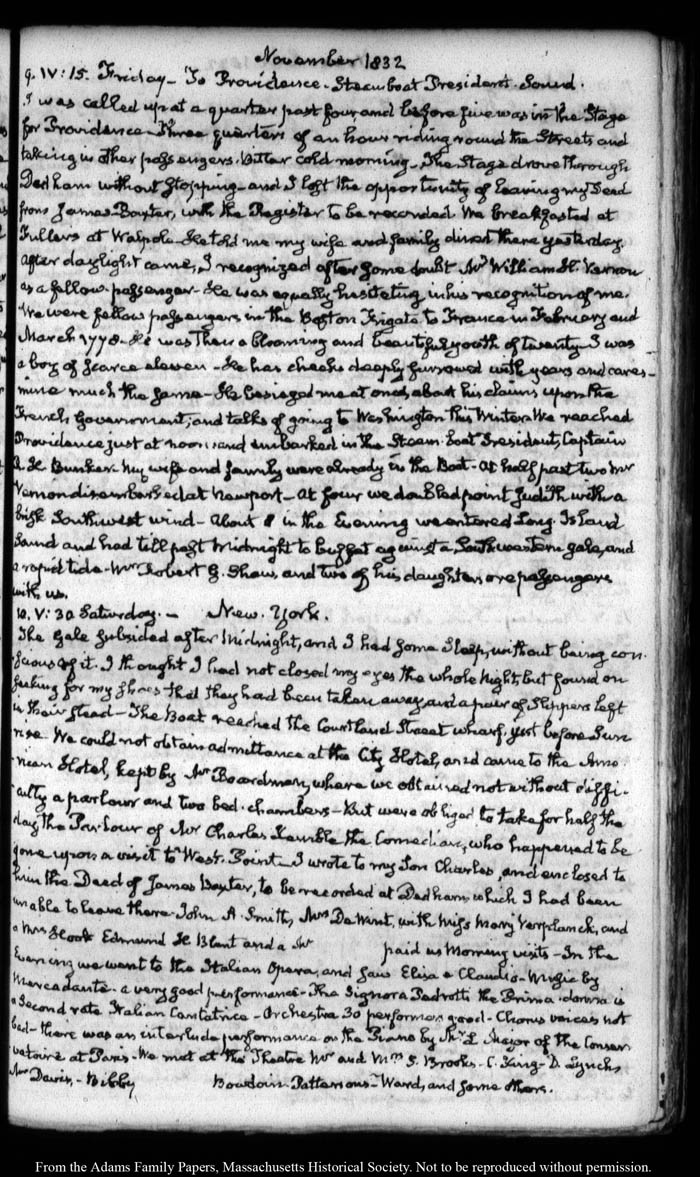 November 1832
9. IV:15. Friday— To Providence. Steamboat President. Sound.
I was called up at a quarter past four and before five was in the Stage
for Providence— Three quarters of an hour riding round the Streets and
taking in other passengers. Bitter cold morning— The Stage drove through
Dedham without stopping— and I lost the opportunity of leaving my Deed
from James Baxter, with the Register to be recorded. We breakfasted at
Fullers at Walpole— He told me my wife and family dined there yesterday.
After daylight came, I recognized after some doubt Mr William H. Vernon
as a fellow-passenger— He was equally hesitating in his recognition of me.
We were fellow passengers in the Boston Frigate to France in February and
March 1778— He was then a blooming and beautiful youth of twenty— I was
a boy of scarce eleven— He has cheeks deeply furrowed with years and cares—
mine much the same— He besieged me at once about his claims upon the
French Government; and talks of going to Washington this Winter. We reached
Providence just at noon; and embarked in the Steam-boat President, Captain
R. H. Bunker. My wife and family were already in the Boat— At half past two Mr
Vernon disembarked at Newport— At four we doubled point Judith with a
brisk Southwest wind— About 8 in the Evening we entered Long Island
Sound and had till past Midnight to buffet against a Southwestern gale, and
a rapid tide— Mr Robert G. Shaw, and two of his daughters are passengers
with us.
10. V:30 Saturday.— New-York.
The Gale subsided after Midnight, and I had some Sleep, without being con-
scious of it. I thought I had not closed my eyes the whole Night, but found on
seeking for my shoes that they had been taken away and a pair of Slippers left
in their stead— The Boat reached the Courtland Street wharf, just before Sun
rise. We could not obtain admittance at the City Hotel, and came to the Ame-
rican Hotel, kept by Mr Boardman, where we obtained not without diffi-
culty a parlour and two bed-chambers— But were obliged to take for half the
day the Parlour of Mr Charles Kemble the Comedian, who happened to be
gone upon a visit to West-Point— I wrote to my Son Charles, and enclosed to
him the Deed of James Baxter, to be recorded at Dedham, which I had been
unable to leave there. John A. Smith, Mrs De Wint, with Miss Mary Verplanck, and
a Mrs Hook Edmund H Blunt and a Mr paid us Morning visits— In the
Evening we went to the Italian Opera, and saw Elisa e Claudio— Music by
Mercadante— a very good performance— The Signora Pedrotti the Prima-donna is
a second rate Italian Cantatrice— Orchestra 30 performers good— Chorus voices not
bad— there was an interlude performance on the Piano by Mr L. Meyer of the Conser-
vatoire at Paris— We met at the Theatre Mr and Mrs S. Brooks— C. King— D. Lynch
Mr Davis,— Bibby Bowdoin— Pattersons— Ward, and some others.
From the Adams Family Papers, Massachusetts Historical Society. Not to be reproduced without permission.